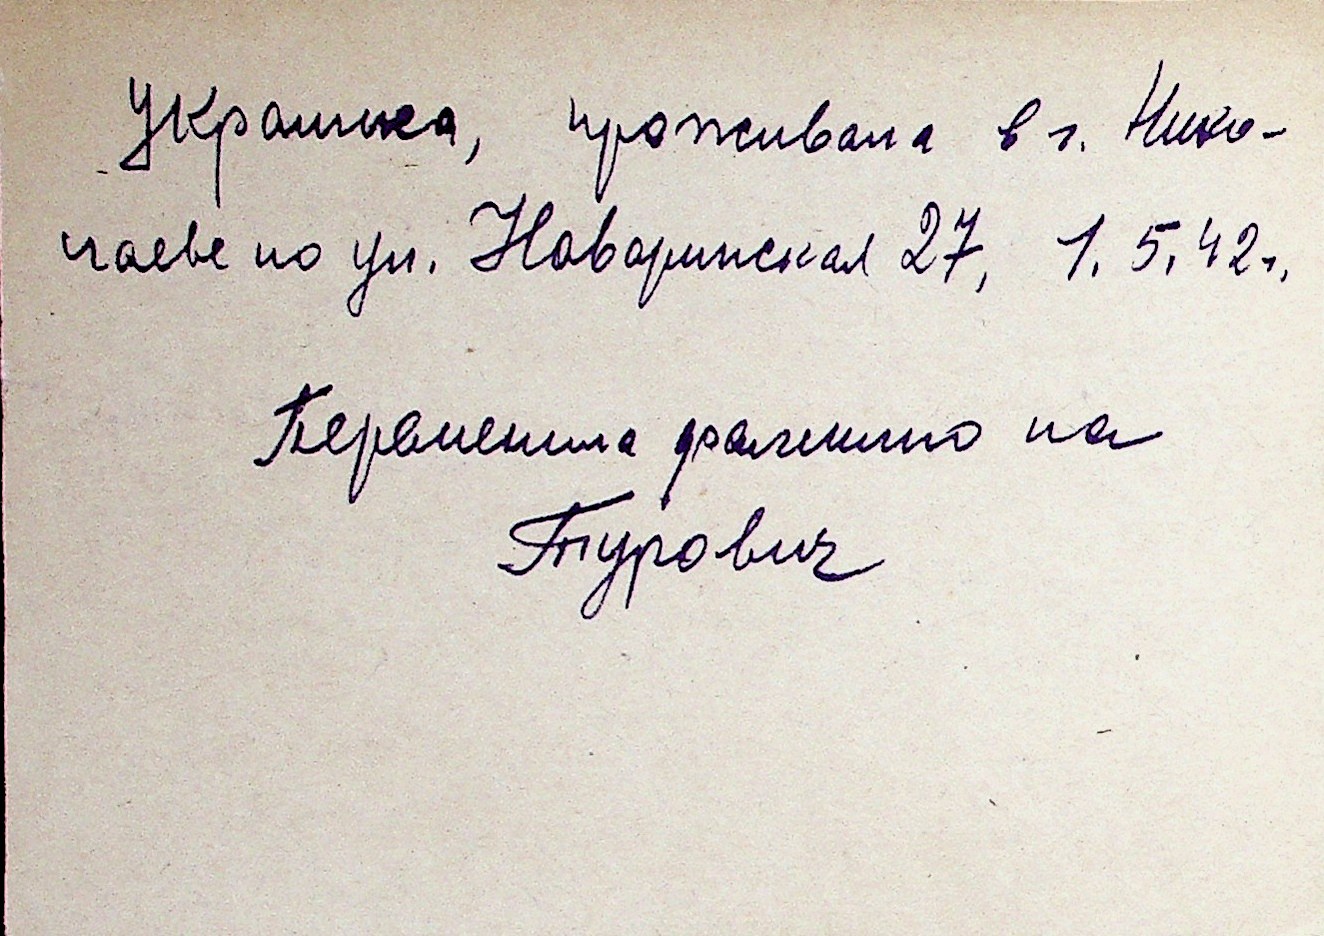 Украинка, проживала в г. Нико-
лаеве по ул. Наваринская 27, 1.5.42 г.
Переменила фамилию на
Турович